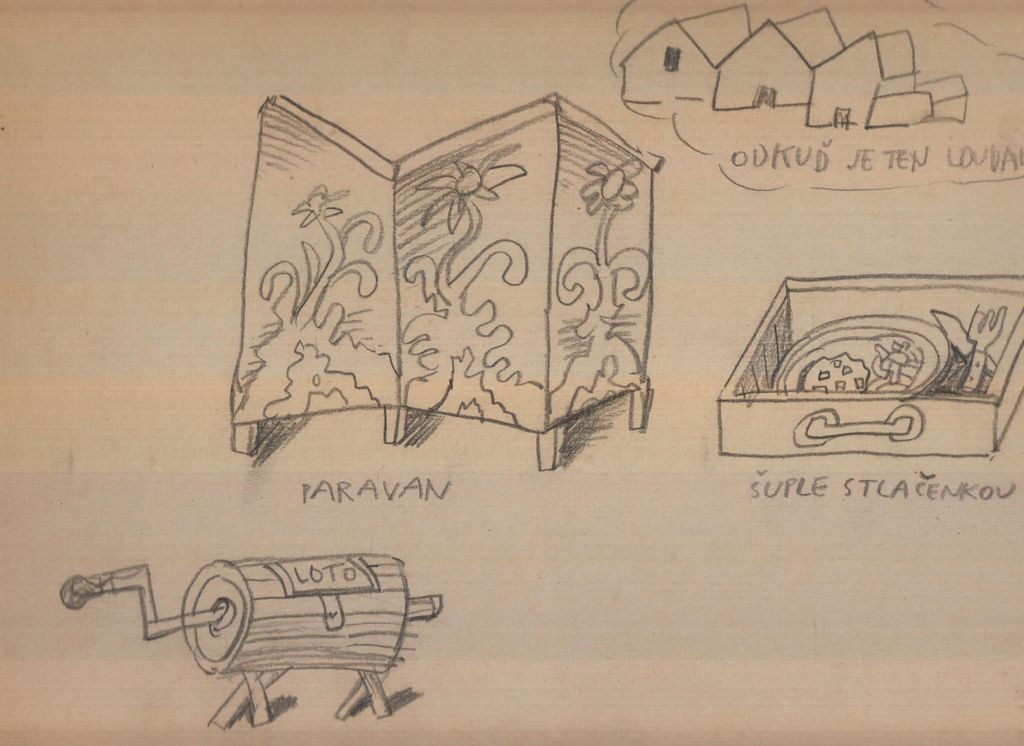 ODKUĎ JE TEN
PARAVAN
ŠUPLE S TLAČENKOU
LOTO